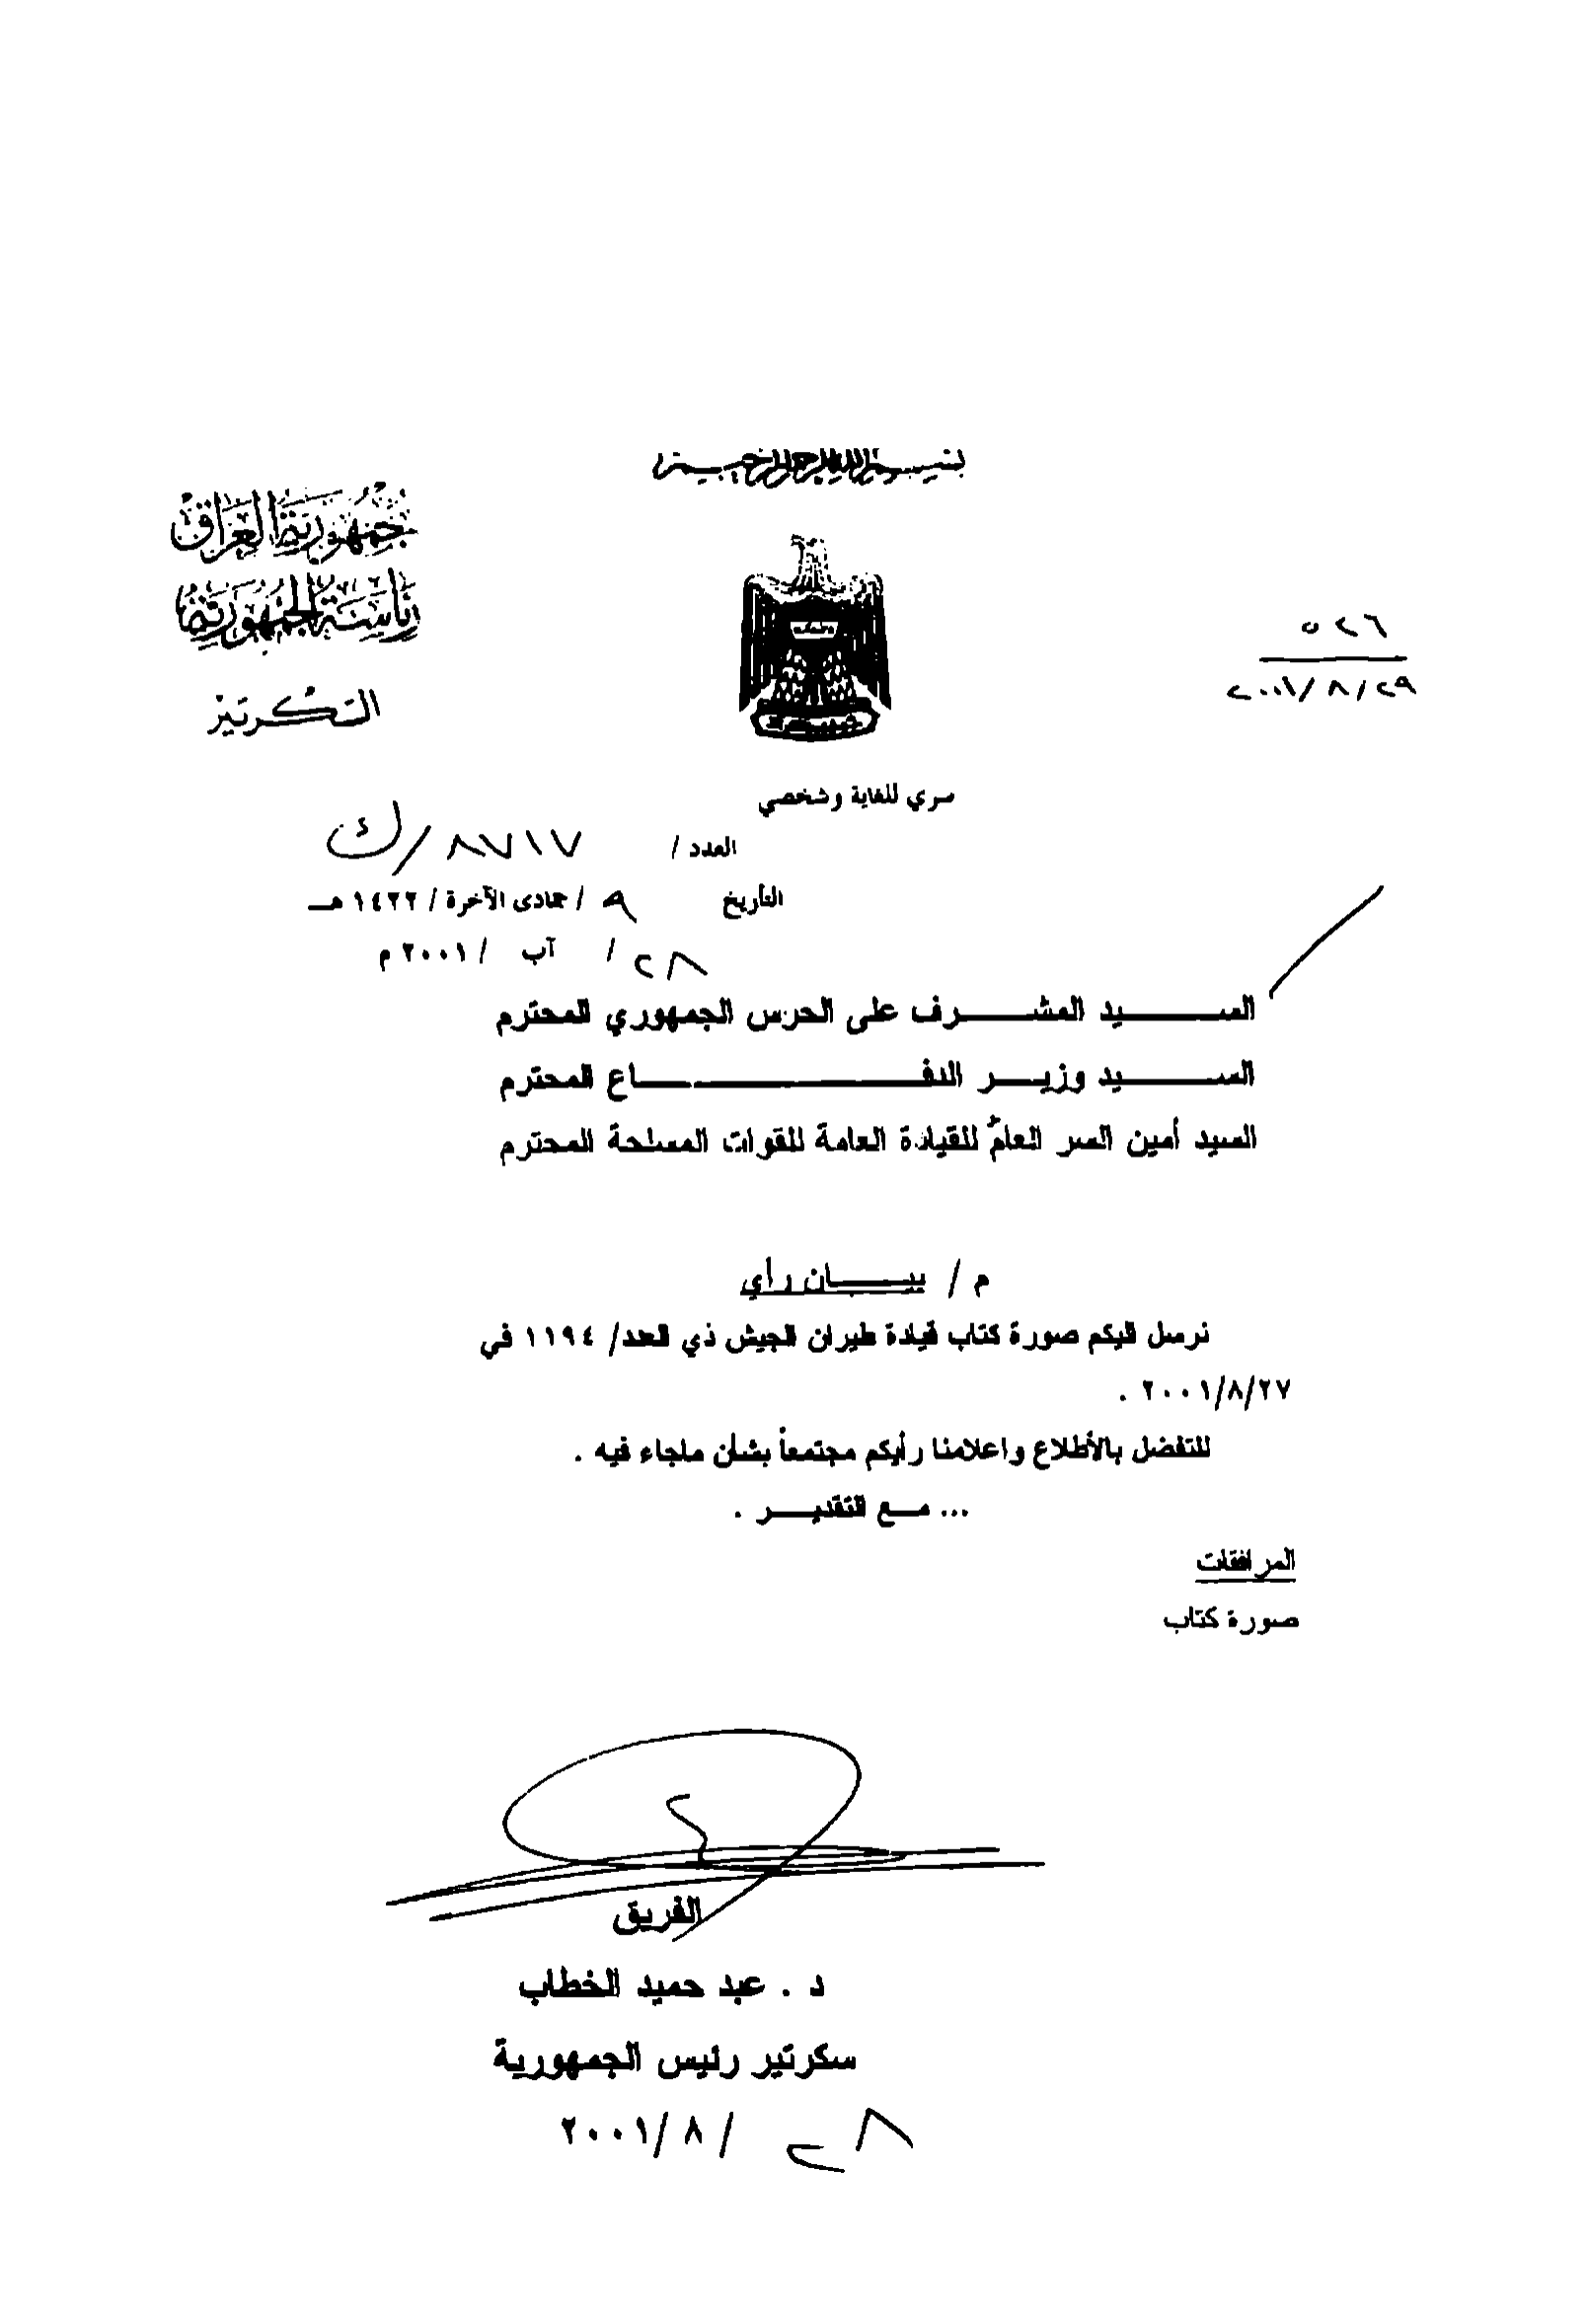 بسم الله الرحمن الرحيم
جمهورية العراق
رئاسة الجمهورية
السكرتير
٥٢٦
٢٠٠١/٨/٢٩
سري للغاية وشخصي
العدد / ٨٧١٧/ك
التأريخ ٩ / جمادى الآخرة / ١٤٢٢ هـ
٢٨ / آب / ٢٠٠١ م
السيد المشرف على الحرس الجمهوري المحترم
السيد وزير الدفاع المحترم
السيد أمين السر العام للقيادة العامة للقوات المسلحة المحترم
م / بيان رأي
نرسل اليكم صورة كتاب قيادة طيران الجيش ذي العدد/ ١١٩٤ في
٢٠٠١/٨/٢٧ .
للتفضل بالأطلاع واعلامنا رأيكم مجتمعاً بشأن ماجاء فيه .
... مع التقدير .
المرافقات
صورة كتاب
الفريق
د . عبد حميد الخطاب
سكرتير رئيس الجمهورية
٢٨ / ٨ /٢٠٠١